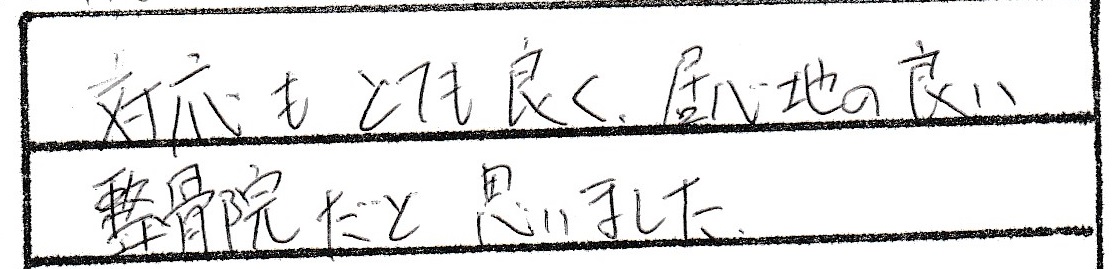 対応もとても良く、居心地の良い
整骨院だと思いました。